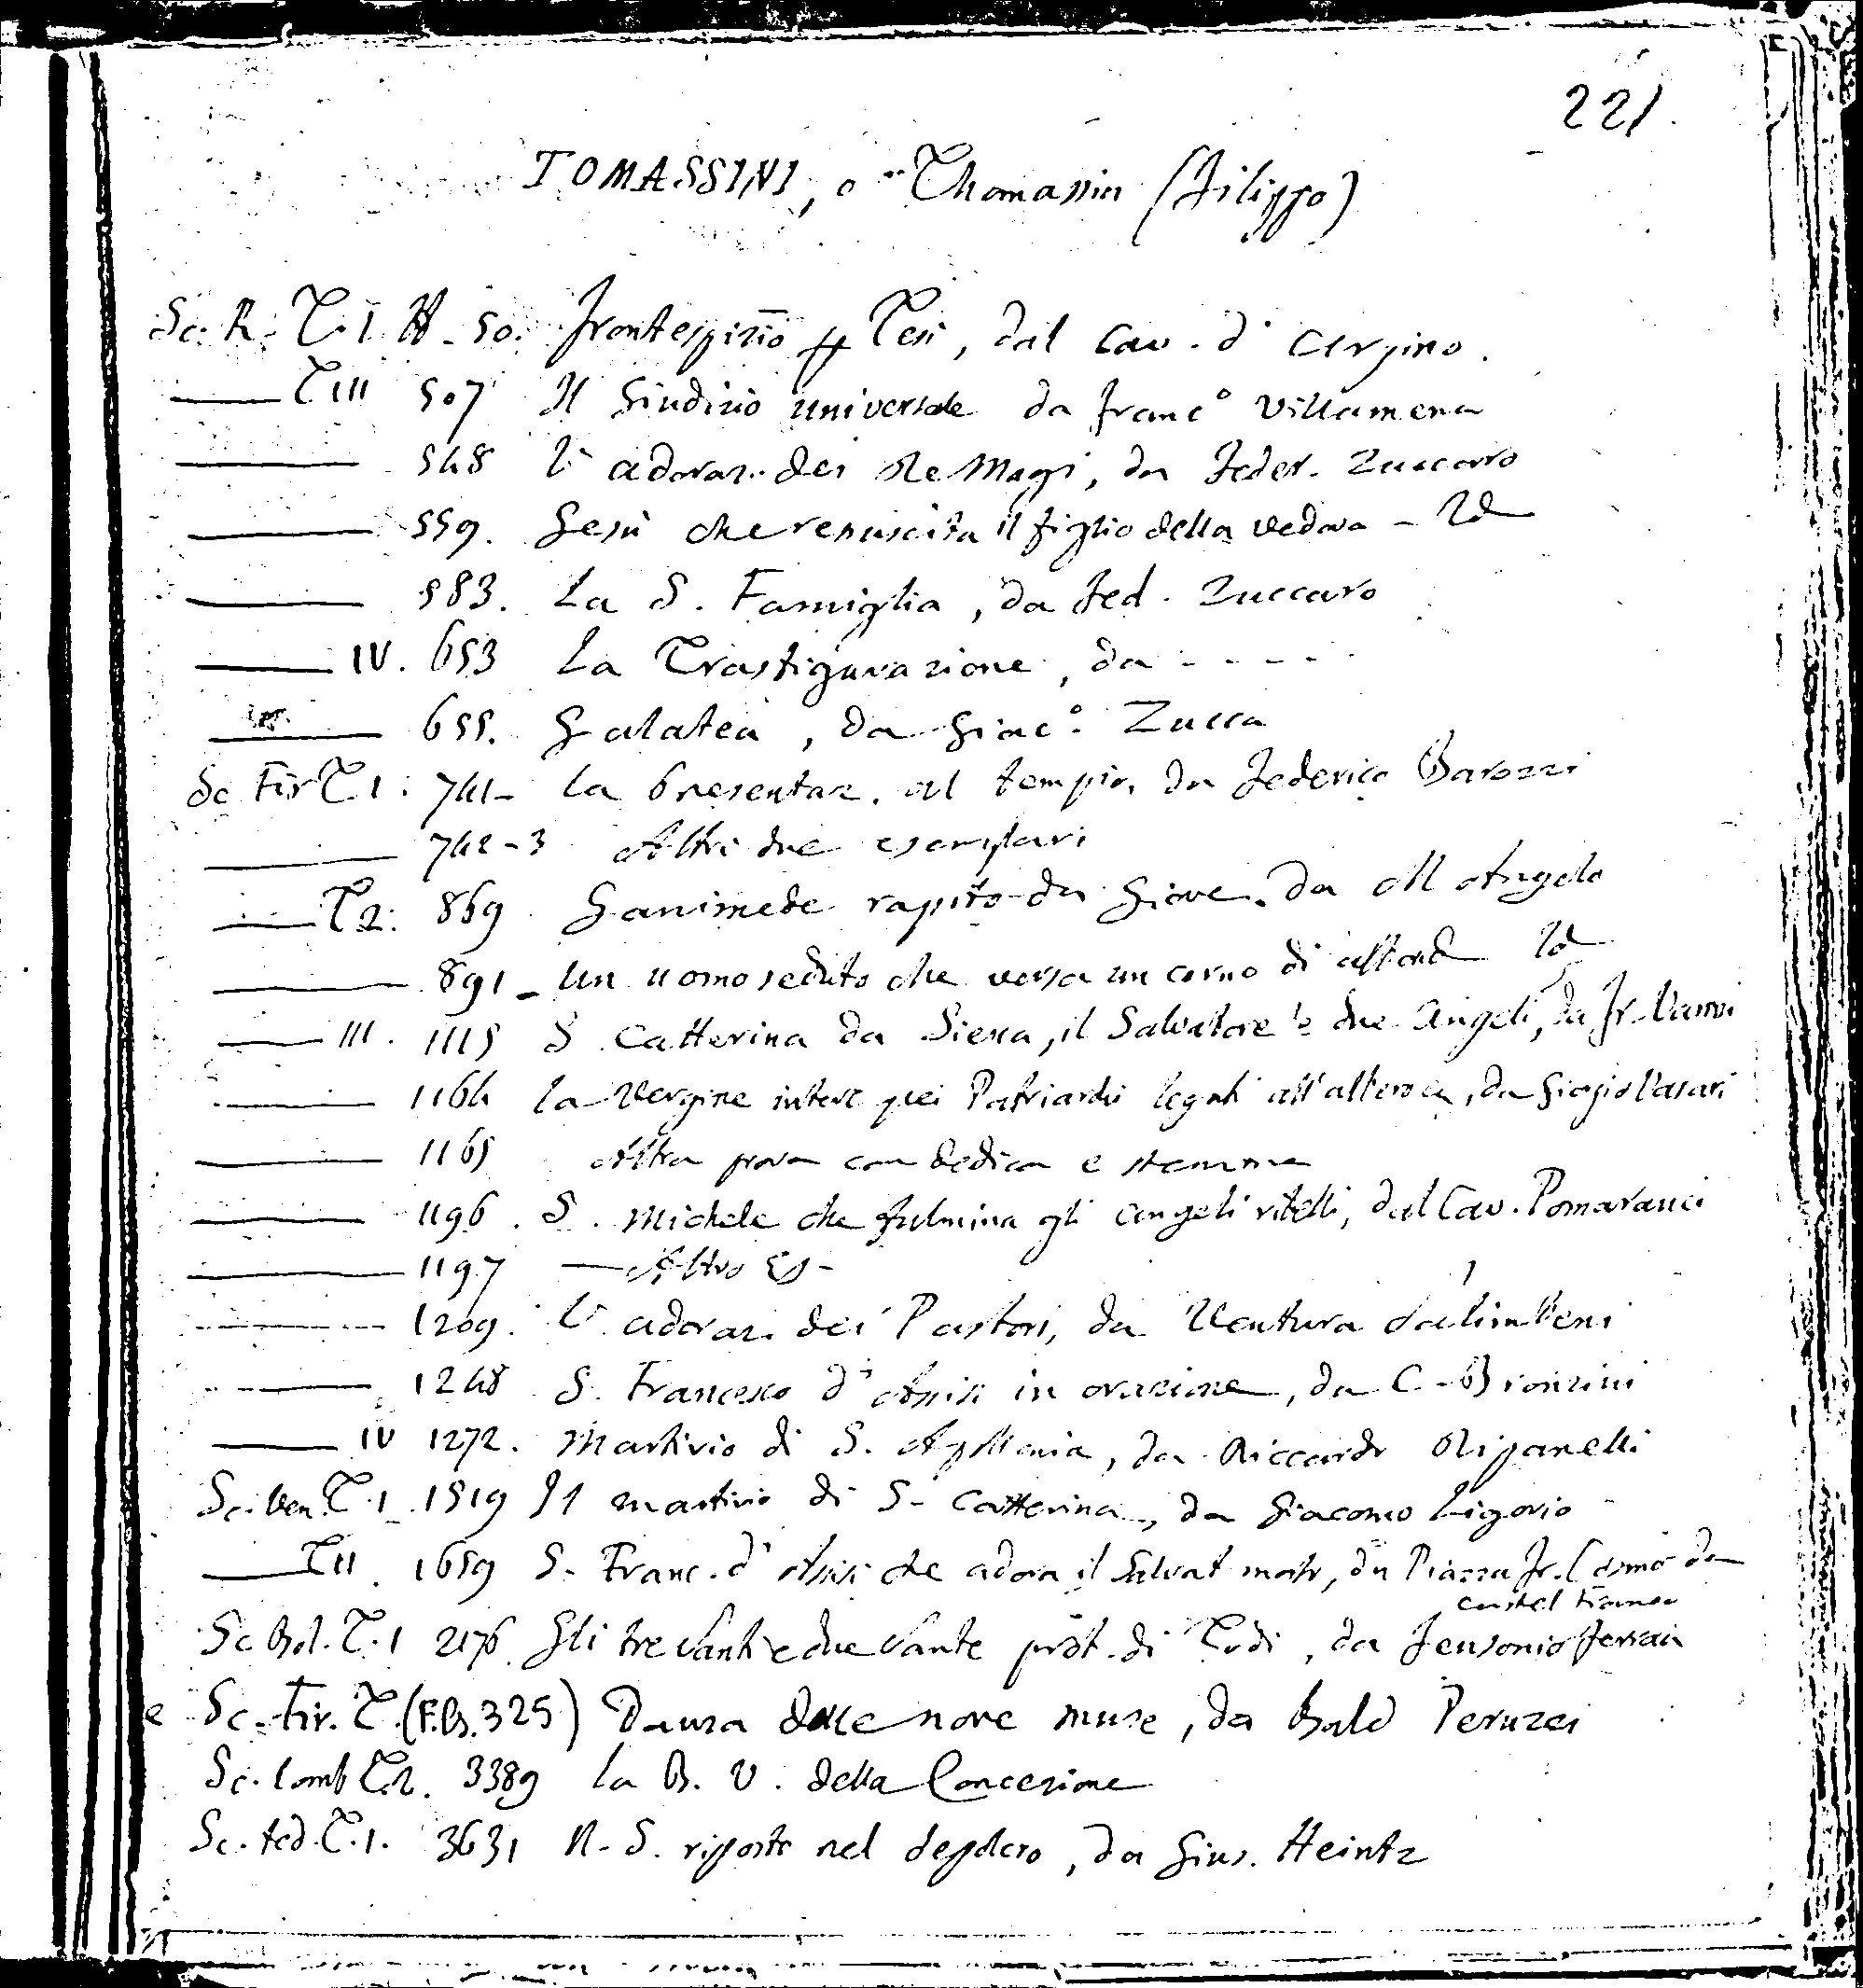 221.
TOMASSINI, o Thomassin (Filippo)
Sc. R. T. I N. 50. Frontespizio p Tesi, dal Cav. d'Arpino.
T III 507 Il Giudizio universale da Franc° Villamena
548 L'adoraz. dei Re Magi, da Feder. Zuccaro
559. Gesù che resuscita il figlio della vedova - Id
583. La S. Famiglia, da Fed. Zuccaro
IV. 653 La Trasfigurazione, da - - - - -
655. Galatea, da Giac°. Zucca
Sc Fir T. 1. 741- La Presentaz. al tempio, da Federico Barozzi
742-3 Altri due esemplari
T 2. 869 Ganimede rapito da Giove. Da M Angelo
891 - Un uomo seduto che versa un corno di abbond Id
III. 1115 S Catterina da Siena, il Salvatore e due Angeli, da Fr. Vanni
1164 La Vergine interc pei Patriarchi legati all'albero, da Giorgio Vasari
1165 Altra prova con dedica e stemma
1196. S. Michele che fulmina gli angeli ribelli, dal Cav. Pomaranci
1197 — Altro Es -
1209. L'adoraz. dei Pastori, da Ventura Salimbeni
1248 S. Francesco d'Assisi in orazione, da C. Bronzini
IV 1272. Martirio di S. Apollonia, da Riccardo Ripanelli
Sc. Ven. T. 1 1519 Il martirio di S. Catterina, da Giacomo Ligorio
T II. 1659 S. Franc. d'Assisi che adora il Salvat morto, da Piazza Fr. Cosmo da
castel Franco
Sc Bol. T. 1 2176 Gli tre Santi e due Sante prot. di Todi, da Fensonio Ferrau
e Sc. Fir. T. (F.B. 325) Danza delle nove muse, da Bald Peruzzi
Sc. lomb T. 2. 3389 La B. V. della Concezione
Sc. ted. T. 1. 3631 N. S. riposto nel Sepolcro, da Gius. Heintz